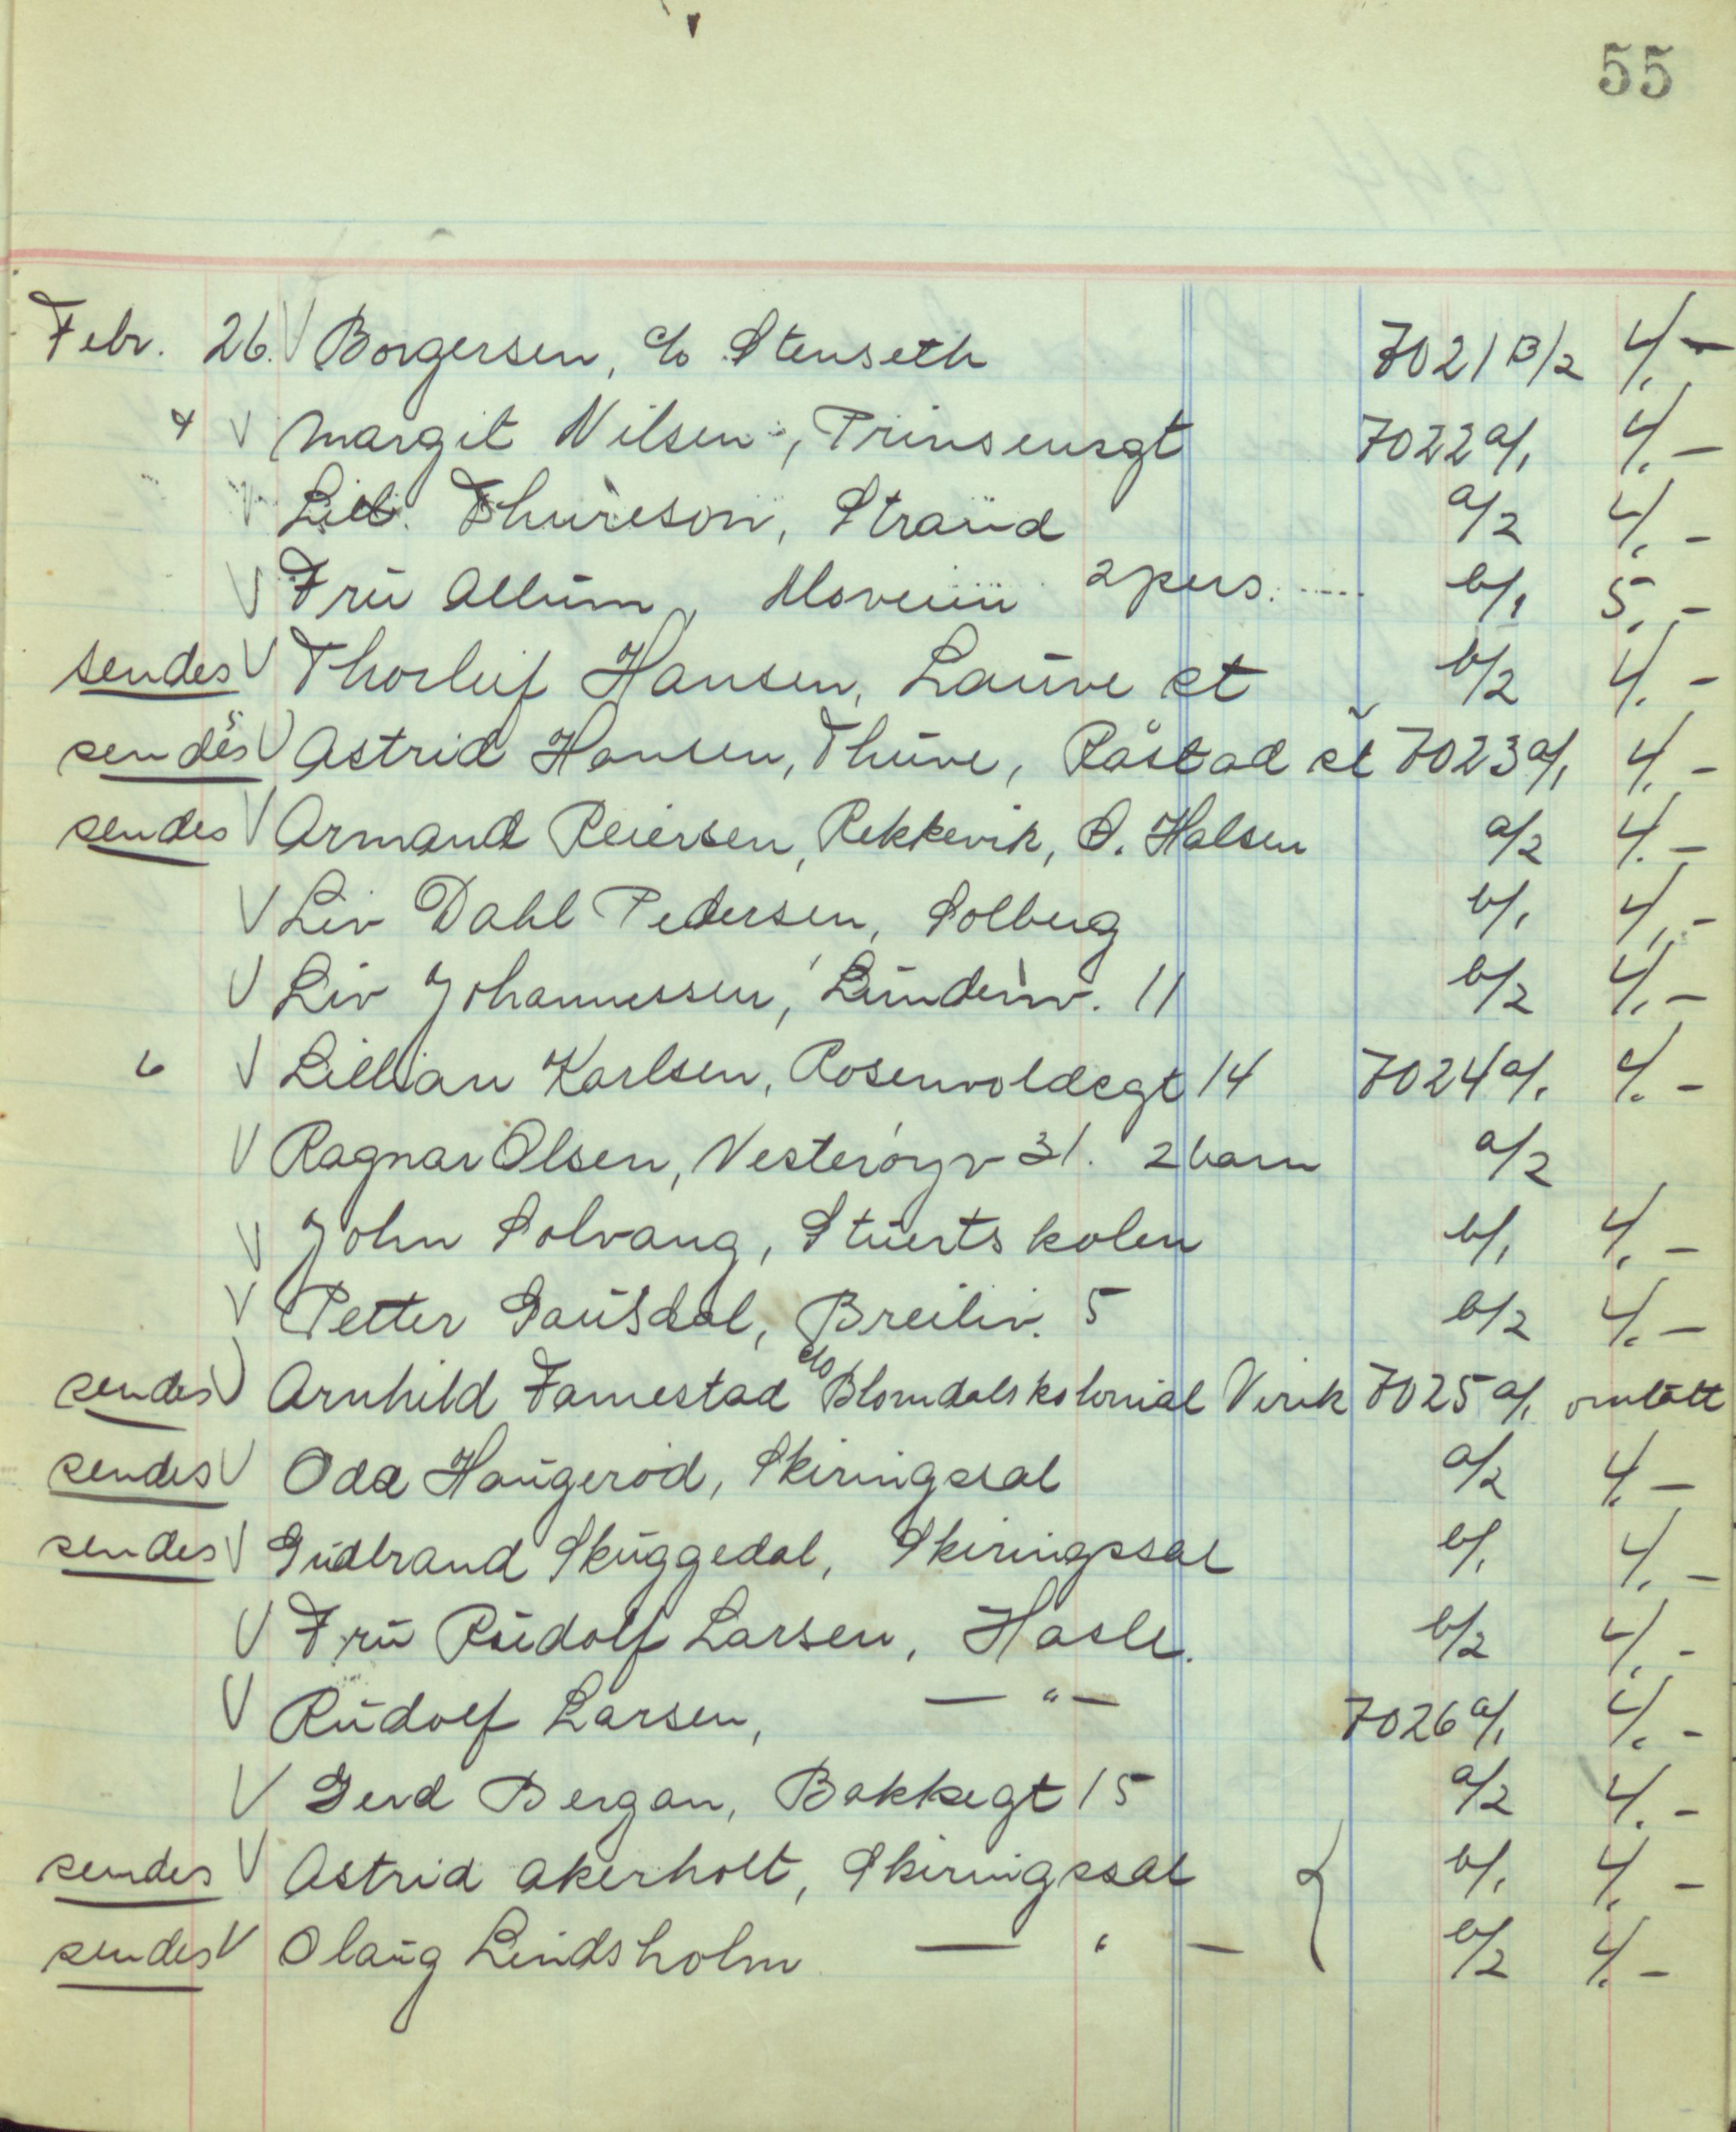 55
Febr. 26. V Borgersen, c/o Stenseth 7021 B/2 4.-
V Margit Nilsen, Prinsensgt 7022 a/1 4.-
Thureson, Strand a/2 4.-
V Fru Allum, 2 pers. b/1 5.-
sendes V Thorleif Hansen, Lauve st b/2 4.-
sendes V Astrid Hansen, Thuve, Råstad st 7023 a/1 4.-
sendes V Armand Reiersen, Rekkevik, Ø. Halsen a/2 4.-
V Liv Dahl Pedersen, Solberg b/1 4.-
V Liv Johannessen, Lundenv. 11 b/2 4.-
V Lillian Karlsen, Rosenvoldsgt 14 7024 a/1 4.-
V Ragnar Olsen, Vesterøyv 31. 2 barn a/2
V John Solvang, Stuertskolen b/1 4.-
V Petter Gausdal, Breiliv. 5 b/2 4.-
sendes V Arnhild Famestad c/o Blomdals kolonial Virik 7025 a/1 omtatt
sendes V Odd Haugerød, Skiringssal a/2 4.-
sendes V Gudbrand Skuggedal, Skiringssal b/1 4.-
V Fru Rudolf Larsen, Hasle. b/2 4.-
V Rudolf Larsen, — " — 7026 a/1 4.-
V Gerd Bergan, Bakkegt 15 a/2 4.-
sendes V Astrid Akerholt, Skiringssal b/1 4.-
sendes V Olaug Lindsholm — " — b/2 4.-